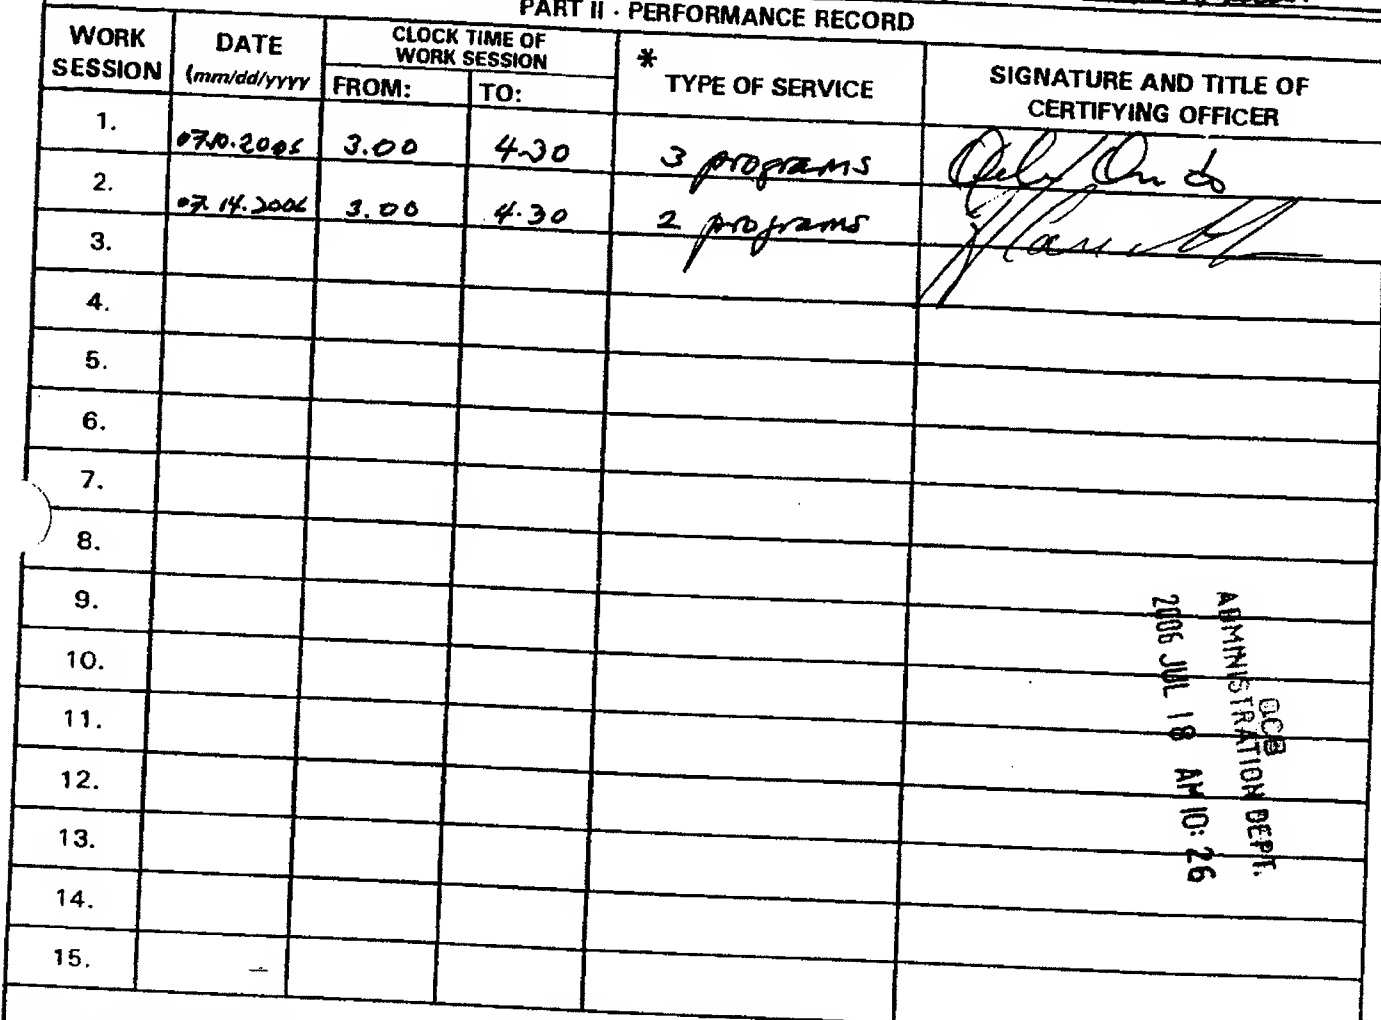 PART II - PERFORMANCE RECORD
WORK SESSION
DATE
(mm/dd/yyyy
CLOCK TIME OF WORK SESSION
FROM:
TO:
*
TYPE OF SERVICE
SIGNATURE AND TITLE OF CERTIFYING OFFICER
1. 07.10.2006 3.00 4.30 3 programs
2. 07.14.2006 3.00 4.30 2 programs
3.
4.
5.
6.
7.
8.
9.
10.
11.
12.
13.
14.
15.
OCB
ADMINISTRATION DEPT.
2006 JUL 18 AM 10:26